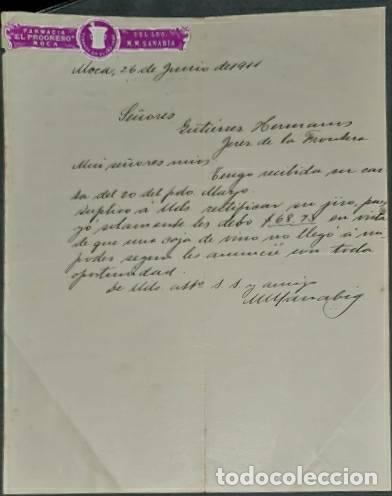 FARMACIA
"EL PROGRESO"
MOCA
DEL LDO.
M. M. SANABIA
Moca, 26 de Junio de 1911
Señores
Gutierrez Hermanos
Jerez de la Frontera
Mui señores mios
Tengo recibida su car
ta del 20 del pdo. Mayo.
Suplico á Uds rectificar su jiro, pues
yo solamente les debo $68.73 en vista
de que una caja de vino no llegó á mi
poder segun les anuncié con toda
oportunidad.
De Uds atto S. S. y amigo
MMSanabia
todocoleccion.net